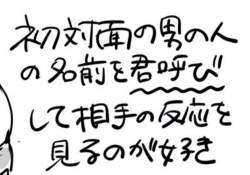 初対面の男の人
の名前を君呼び
して相手の反応を
見るのが好き